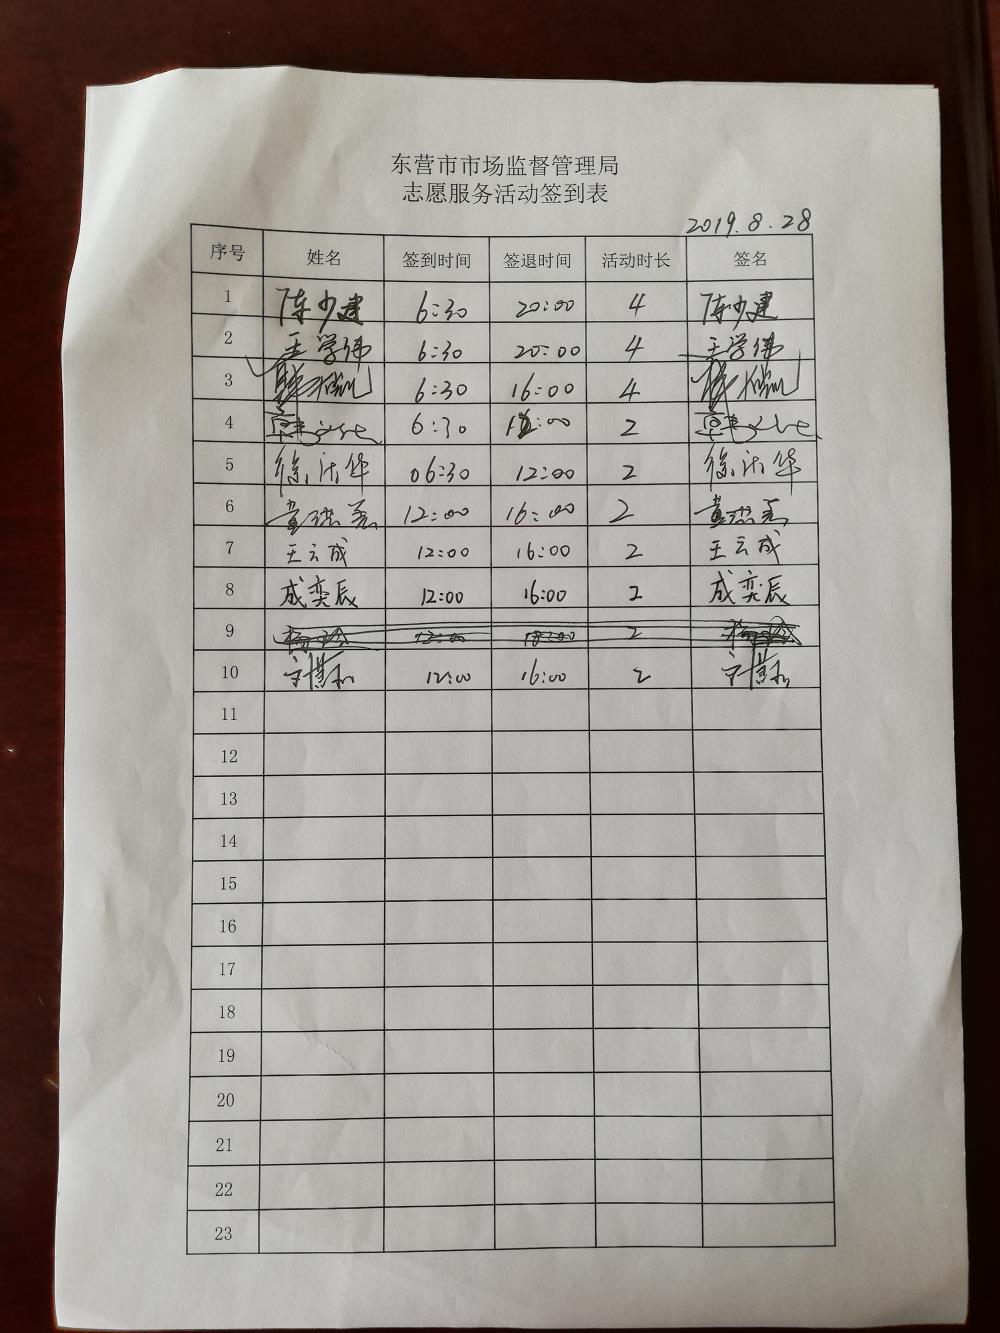 东营市市场监督管理局
志愿服务活动签到表
2019.8.28
序号 姓名 签到时间 签退时间 活动时长 签名
1 陈少建 6:30 20:00 4 陈少建
2 王学伟 6:30 20:00 4 王学伟
3 6:30 16:00 4
4 6:30 12:00 2
5 徐洪华 06:30 12:00 2 徐洪华
6 12:00 16:00 2
7 王云成 12:00 16:00 2 王云成
8 成奕辰 12:00 16:00 2 成奕辰
9 2
10 12:00 16:00 2
11
12
13
14
15
16
17
18
19
20
21
22
23